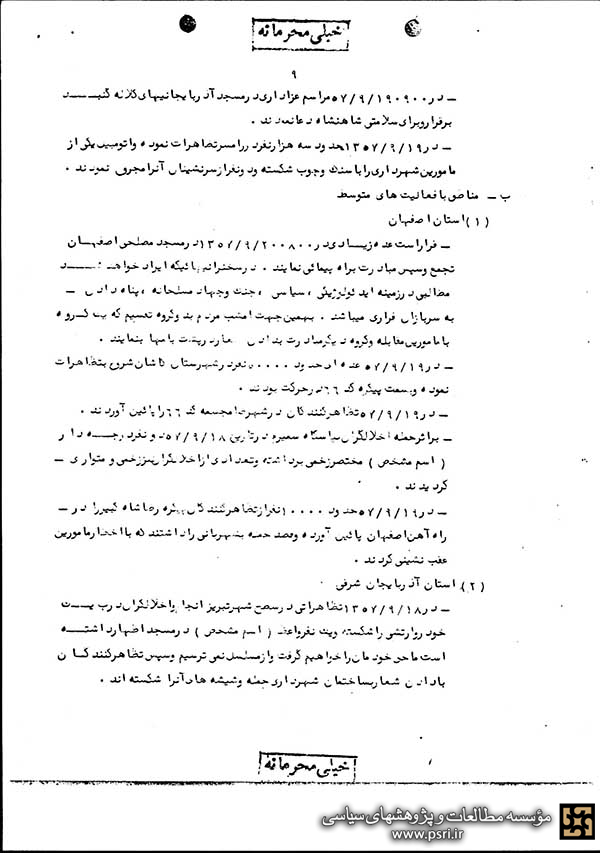 خیلی محرمانه
۹
ـ در ۵۷/۹/۱۹۰۹۰۰ مراسم عزاداری در مسجد آذربایجانیهای کلاله گنبد
برقرار و برای سلامتی شاهنشاه دعا نمودند .
ـ در ۱۳۵۷/۹/۱۹ حدود سه هزار نفر در رامسر تظاهرات نموده و اتومبیل یکی از
مامورین شهرداری را با سنگ و چوب شکسته و دو نفر از سرنشینان آنرا مجروح نمودند .
ب ـ مناطق با فعالیت های متوسط
(۱) استان اصفهان
ـ قرار است عده زیادی در ۱۳۵۷/۹/۲۰۰۸۰۰ در مسجد مصلحی اصفهان
تجمع و سپس مبادرت براه پیمائی نمایند . در سخنرانیهائیکه ایراد خواهد شد
مطالبی در زمینه ایدئولوژیکی ، سیاسی ، جنگ و جهاد مسلحانه ، پناه دادن ـ
به سربازان فراری میباشد . بهمین جهت امشب مردم بدو گروه تقسیم که یک گروه
با مامورین مقابله و گروه دیگر مبادرت به بنمایند .
ـ در ۵۷/۹/۱۹ عده ای حدود نفر در شهرستان کاشان شروع بتظاهرات
نموده و بسمت پیکره کد ۶۶ در حرکت بودند .
ـ در ۵۷/۹/۱۹ تظاهرکنندگان در شهرضا مجسمه کد ۶۶ را پائین آوردند .
ـ براثر حمله اخلالگران بپاسگاه سمیرم در تاریخ ۵۷/۹/۱۸ دو نفر درجه دار
( اسم مشخص ) مختصر زخمی برداشته و تعدادی از اخلالگران نیز زخمی و متواری ـ
گردیدند .
ـ در ۵۷/۹/۱۹ حدود ۱۰۰۰۰ نفر از تظاهرکنندگان پیکره رضاشاه کبیر را در ـ
راه آهن اصفهان پائین آورده و قصد حمله بشهربانی را داشتند که با اخطار مامورین
عقب نشینی کردند .
(۲) استان آذربایجان شرقی
ـ در ۱۳۵۷/۹/۱۸ تظاهراتی در سطح شهر تبریز انجام و اخلالگران درب یک
خودرو ارتشی را شکسته و یک نفر واعظ ( اسم مشخص ) در مسجد اظهار داشته
است ما حق خودمان را خواهیم گرفت و از مسلسل نمی ترسیم و سپس تظاهرکنندگان
با دادن شعار بساختمان شهرداری حمله و شیشه های آنرا شکسته اند .
خیلی محرمانه
مؤسسه مطالعات و پژوهشهای سیاسی
www.psri.ir